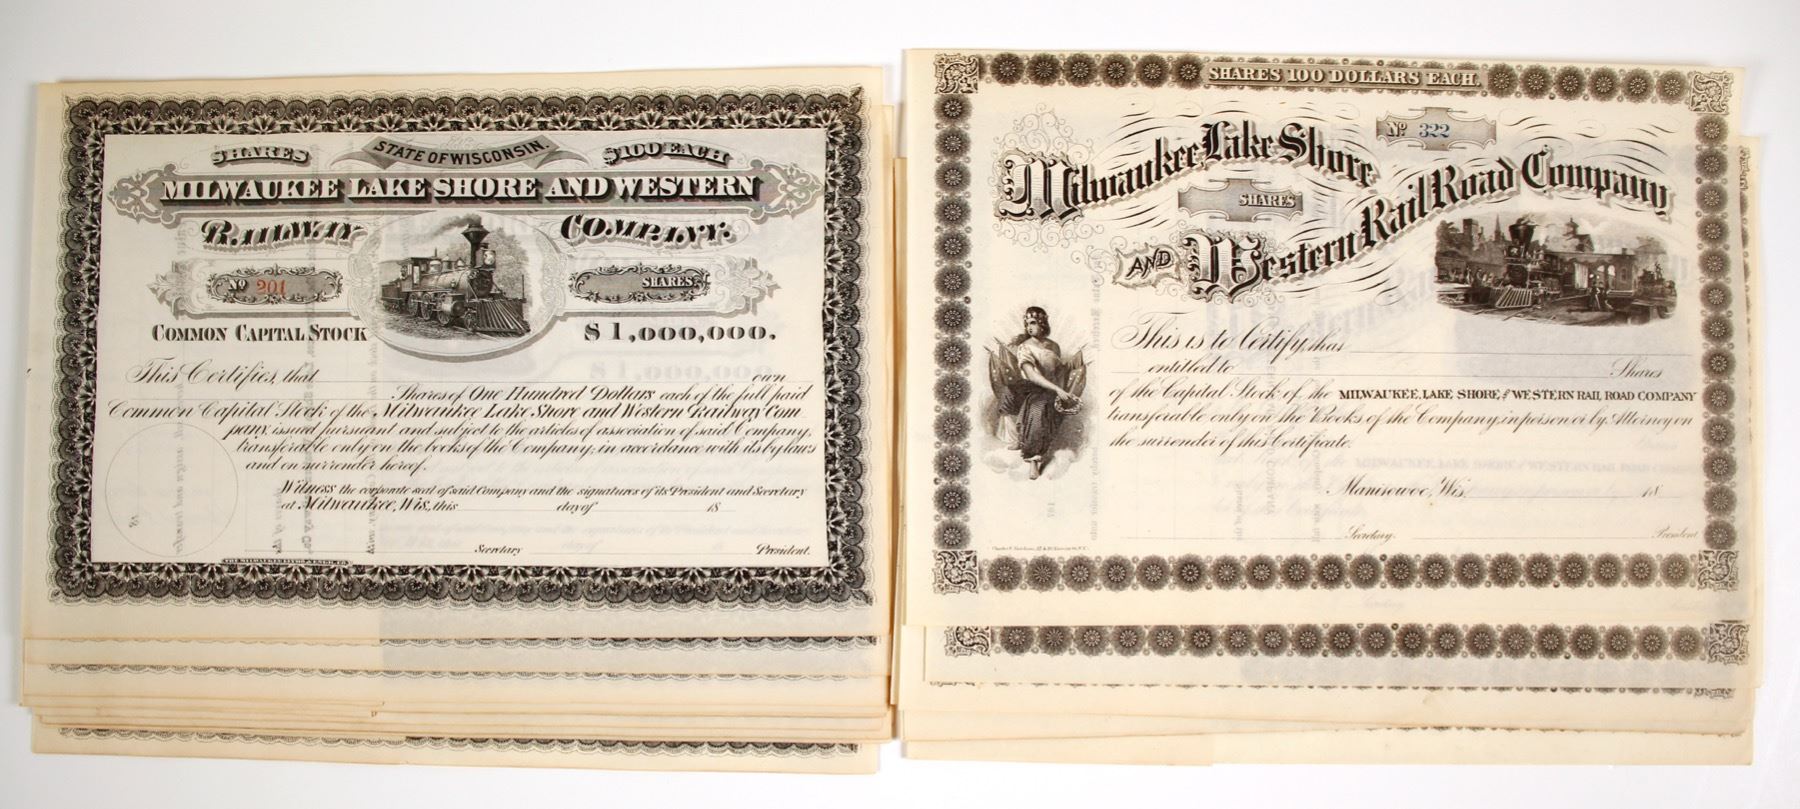 SHARES STATE OF WISCONSIN. $100 EACH
MILWAUKEE LAKE SHORE AND WESTERN
RAILWAY COMPANY.
No 201 SHARES
COMMON CAPITAL STOCK $1,000,000.
This Certifies, that own
Shares of One Hundred Dollars each of the full paid
Common Capital Stock of the Milwaukee Lake Shore and Western Railway Com
pany, issued pursuant and subject to the articles of association of said Company,
transferable only on the books of the Company, in accordance with its by laws
and on surrender hereof.
Witness the corporate seal of said Company and the signatures of its President and Secretary
at Milwaukee, Wis, this day of 18
Secretary President.
THE MILWAUKEE LITHO & ENGR. CO.
SHARES 100 DOLLARS EACH.
No 322
Milwaukee Lake Shore
SHARES
AND Western Rail Road Company
This is to Certify, that
entitled to Shares
of the Capital Stock of the MILWAUKEE, LAKE SHORE and WESTERN RAIL ROAD COMPANY
transferable only on the Books of the Company, in person or by Attorney on
the surrender of this Certificate.
Manitowoc, Wis. 18
Secretary. President